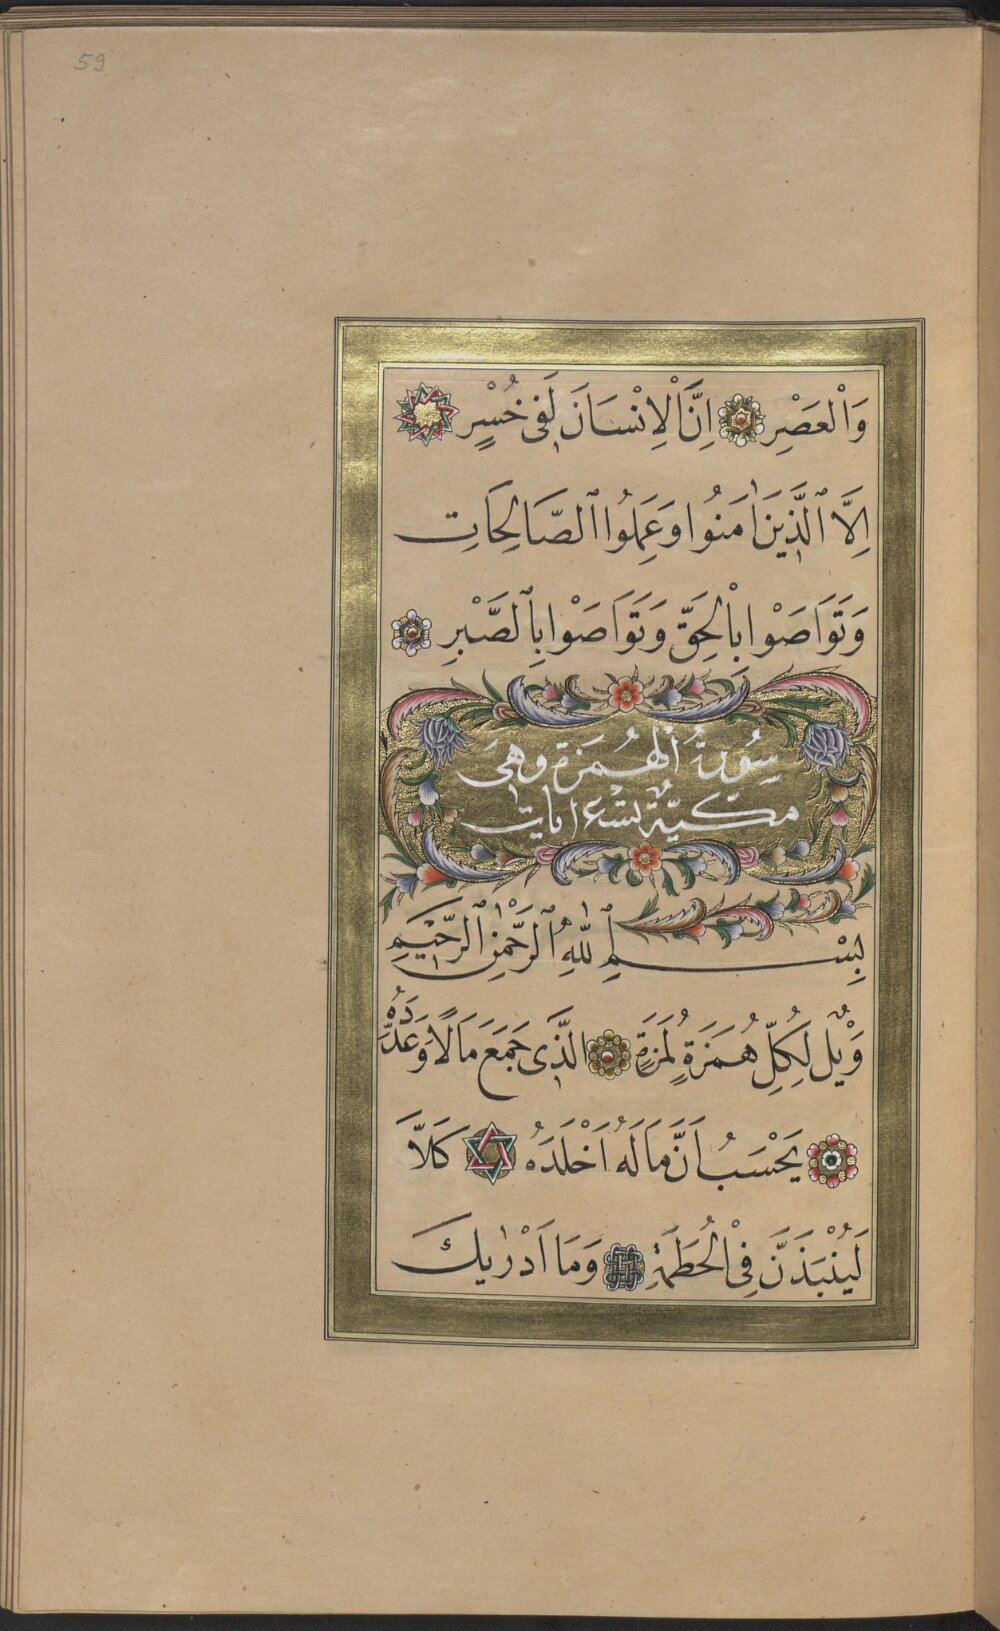 59
وَالْعَصْرِ اِنَّ الْاِنْسَانَ لَفٖى خُسْرٍ
اِلَّا الَّذٖينَ اٰمَنُوا وَعَمِلُوا الصَّالِحَاتِ
وَتَوَاصَوْا بِالْحَقِّ وَتَوَاصَوْا بِالصَّبْرِ
سُورَةُ الْهُمَزَةِ وَهِىَ
مكّيّةٌ تسْع اٰيات
بِسْمِ اللّٰهِ الرَّحْمٰنِ الرَّحٖيمِ
وَيْلٌ لِكُلِّ هُمَزَةٍ لُمَزَةٍ الَّذٖى جَمَعَ مَالًا وَعَدَّدَهُ
يَحْسَبُ اَنَّ مَالَهُ اَخْلَدَهُ كَلَّا
لَيُنْبَذَنَّ فِى الْحُطَمَةِ وَمَا اَدْرٰيكَ